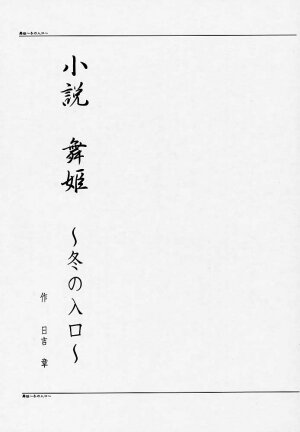 舞姫~冬の入口~
小説 舞姫
~冬の入口~
作 日吉 章
舞姫~冬の入口~